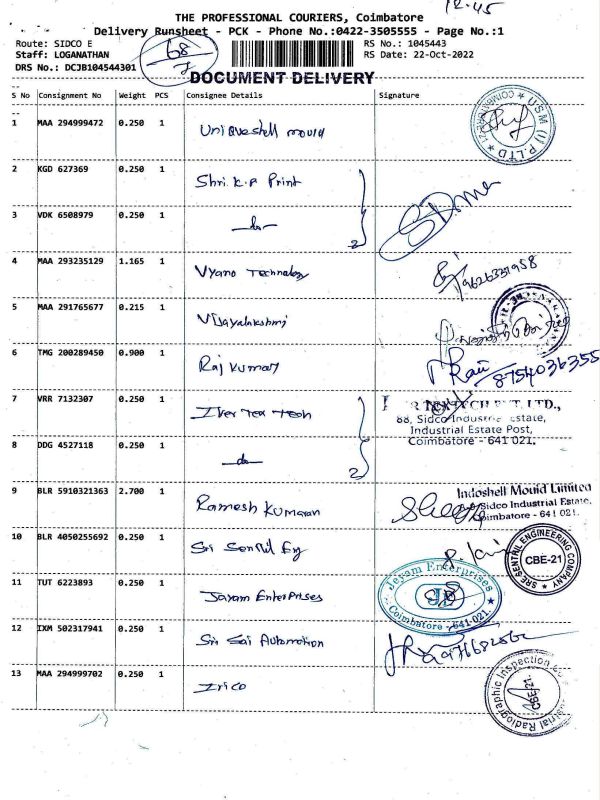 12.45
THE PROFESSIONAL COURIERS, Coimbatore
Delivery Runsheet - PCK - Phone No.:0422-3505555 - Page No.:1
Route: SIDCO E
RS No.: 1045443
Staff: LOGANATHAN
68
RS Date: 22-Oct-2022
DRS No.: DCJB104544301
DOCUMENT DELIVERY
S No Consignment No Weight PCS Consignee Details Signature
1 MAA 294999472 0.250 1 Uniqueshell mould
USM (I) P.LTD
COIMBATORE
2 KGD 627369 0.250 1 Shri. K.P Print
3 VDK 6508979 0.250 1 —do—
2
4 MAA 293235129 1.165 1 Vyano Technology
9626331958
5 MAA 291765677 0.215 1 Vijayalakshmi
6 TMG 200289450 0.900 1 Raj kumar
8754036355
7 VRR 7132307 0.250 1 Iker Tex Tech
88, Sidco Industrial Estate,
Industrial Estate Post,
Coimbatore - 641 021.
8 DDG 4527118 0.250 1 —do—
2
9 BLR 5910321363 2.700 1 Ramesh Kumaran
Indoshell Mould Limited
Sidco Industrial Estate,
Coimbatore - 641 021.
10 BLR 4050255692 0.250 1 Sri Senthil Eng
SRE SENTHIL ENGINEERING COMPANY
CBE-21
11 TUT 6223893 0.250 1 Jayam Enterprises
Jeyam Enterprises
Coimbatore - 641 021.
12 IXM 502317941 0.250 1 Sri Sai Automation
13 MAA 294999702 0.250 1 Irico
Industrial Radiographic Inspection
CBE-21.